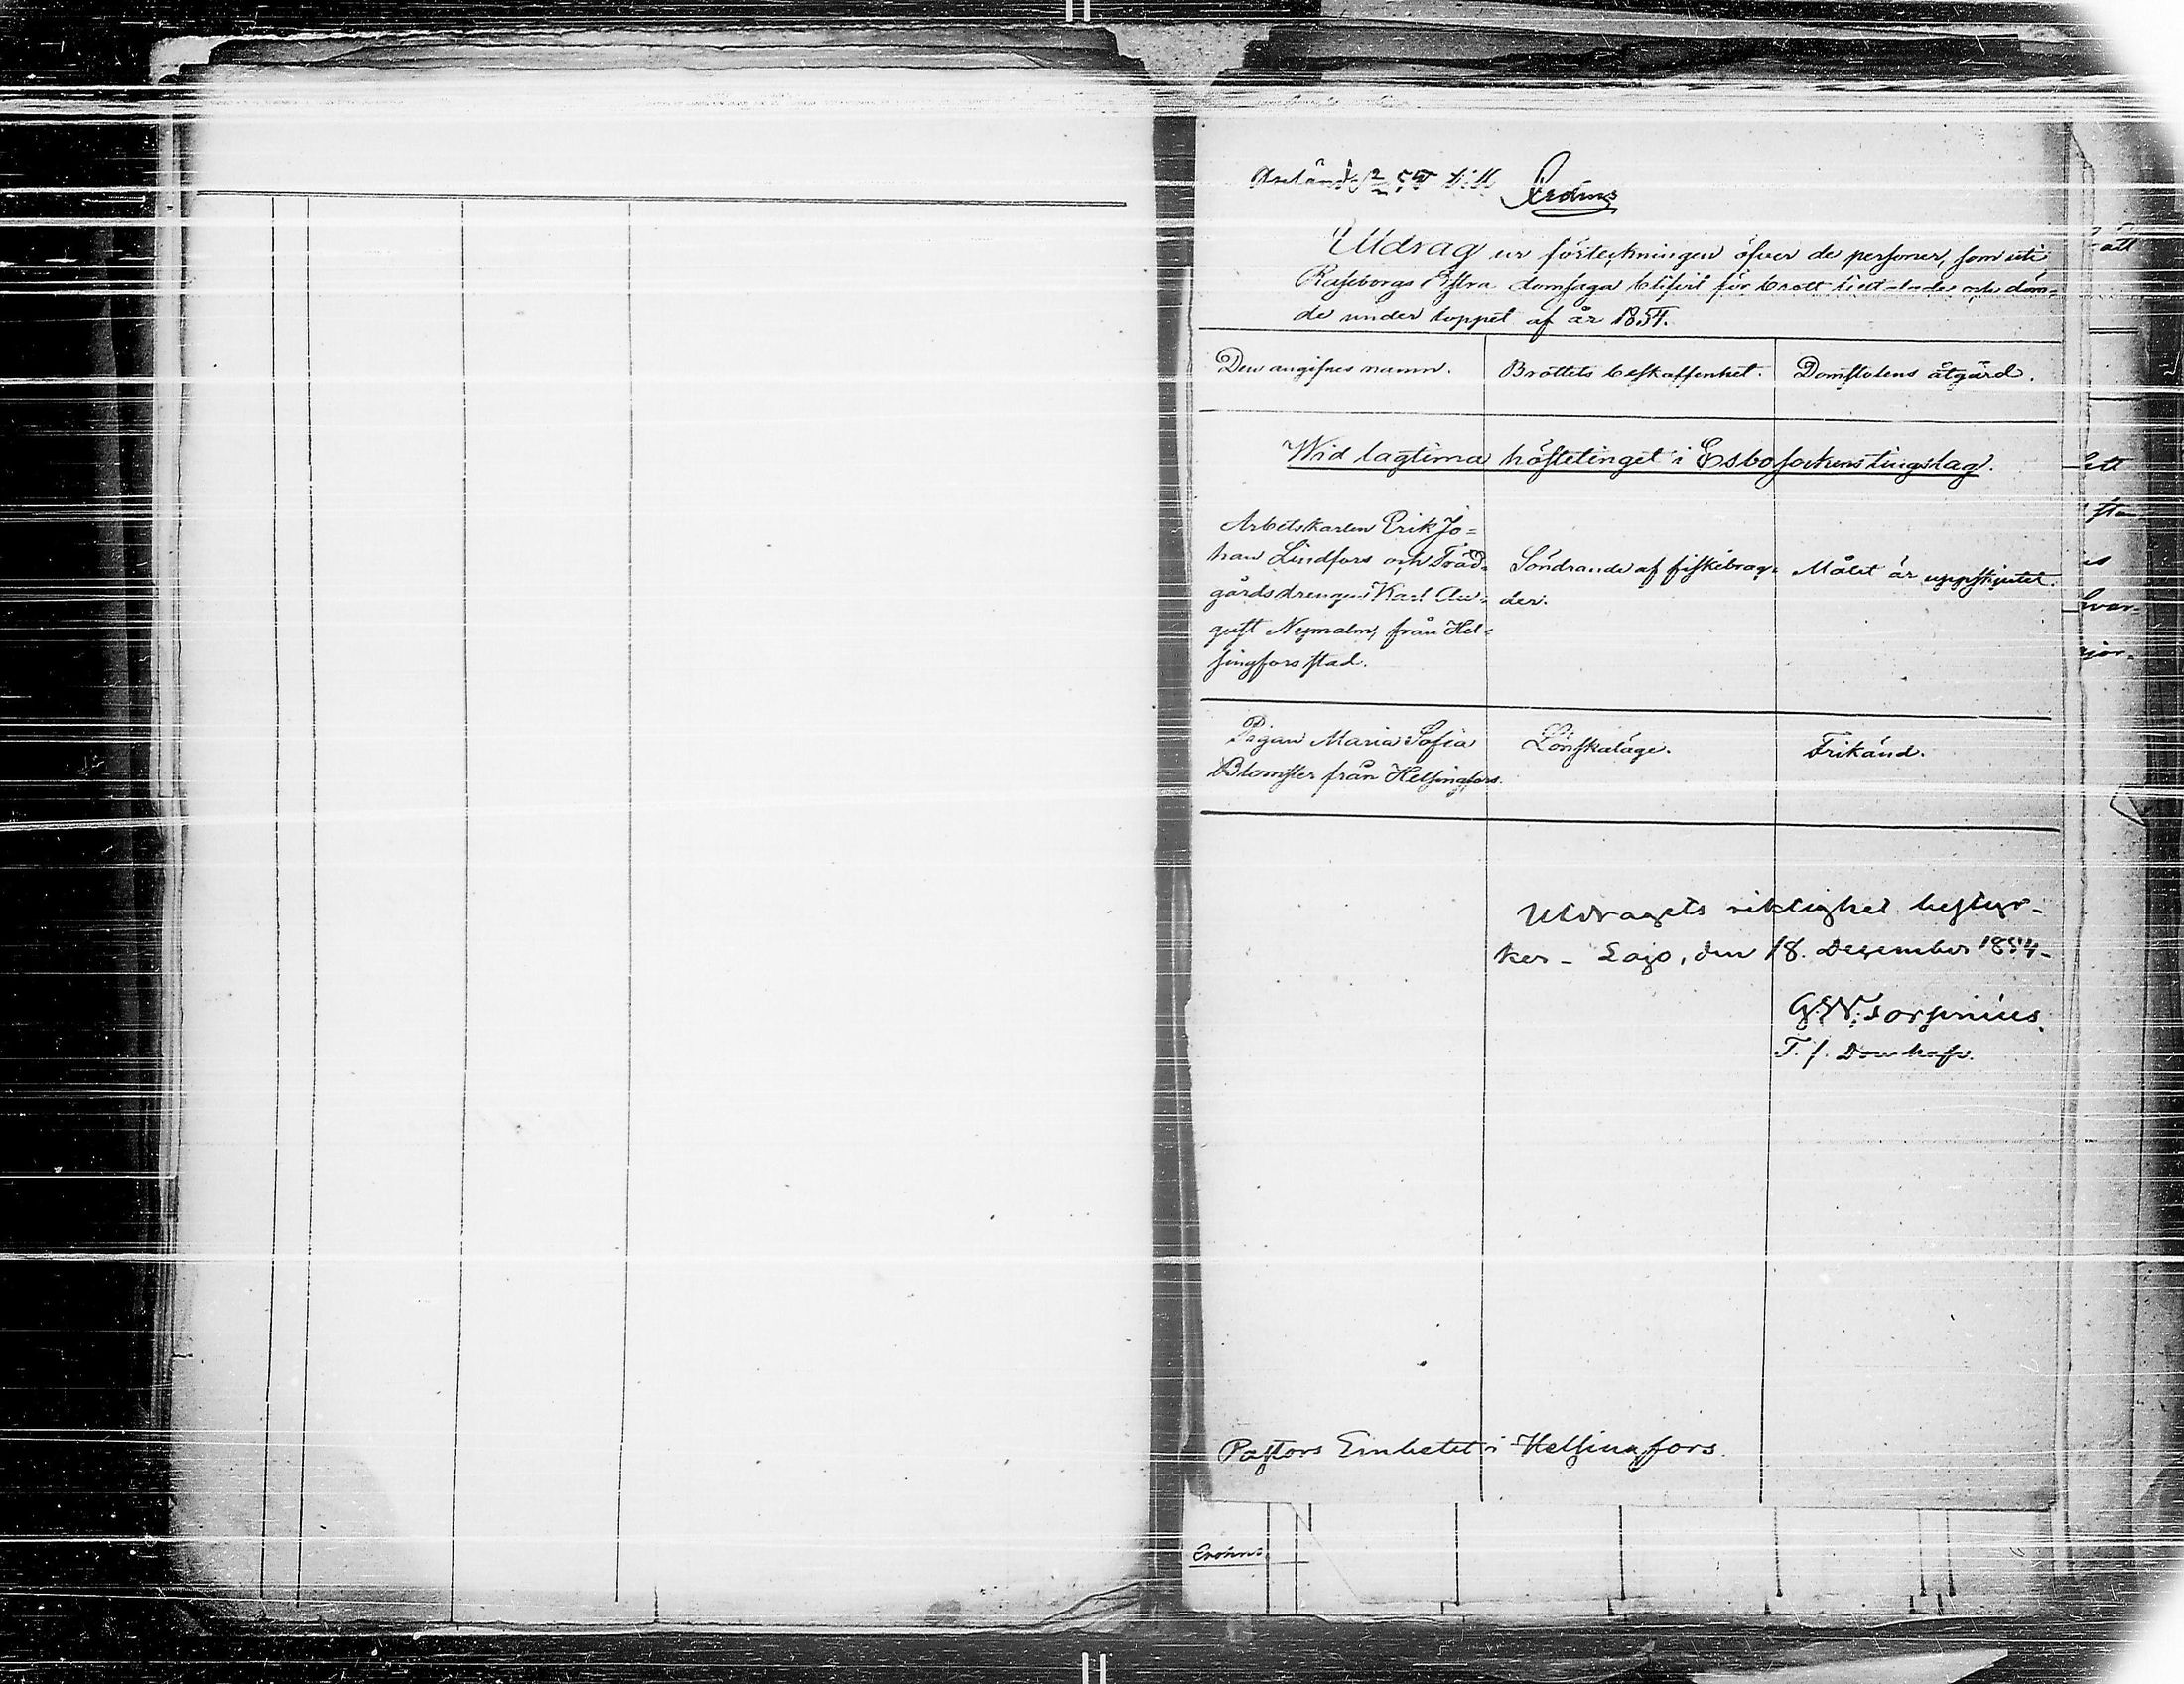 till
Utdrag ur förteckningen öfver de personer, som uti
Raseborgs Östra domsaga blifvit för brott och döm-
de under loppet af år 1854.
Den angifnes namn.
Brottets beskaffenhet.
Domstolens åtgärd.
Wid lagtima höstetinget i Esbo sockens tingslag.
Arbetskarlen Erik Jo=
han Lindfors och Träd=
gårdsdrengen Karl Au=
gust Nymalm, från Hel=
singfors stad.
Söndrande af fiskebrag=
der.
Målet är uppskjutet.
Pigan Maria Sofia
Blomster från Helsingfors.
Lönskaläge.
Frikänd.
Utdragets riktighet bestyr-
ker - Lojo, den 18. December 1854-
T. f. Domhafv.
Pastors Embetet i Helsingfors.
att